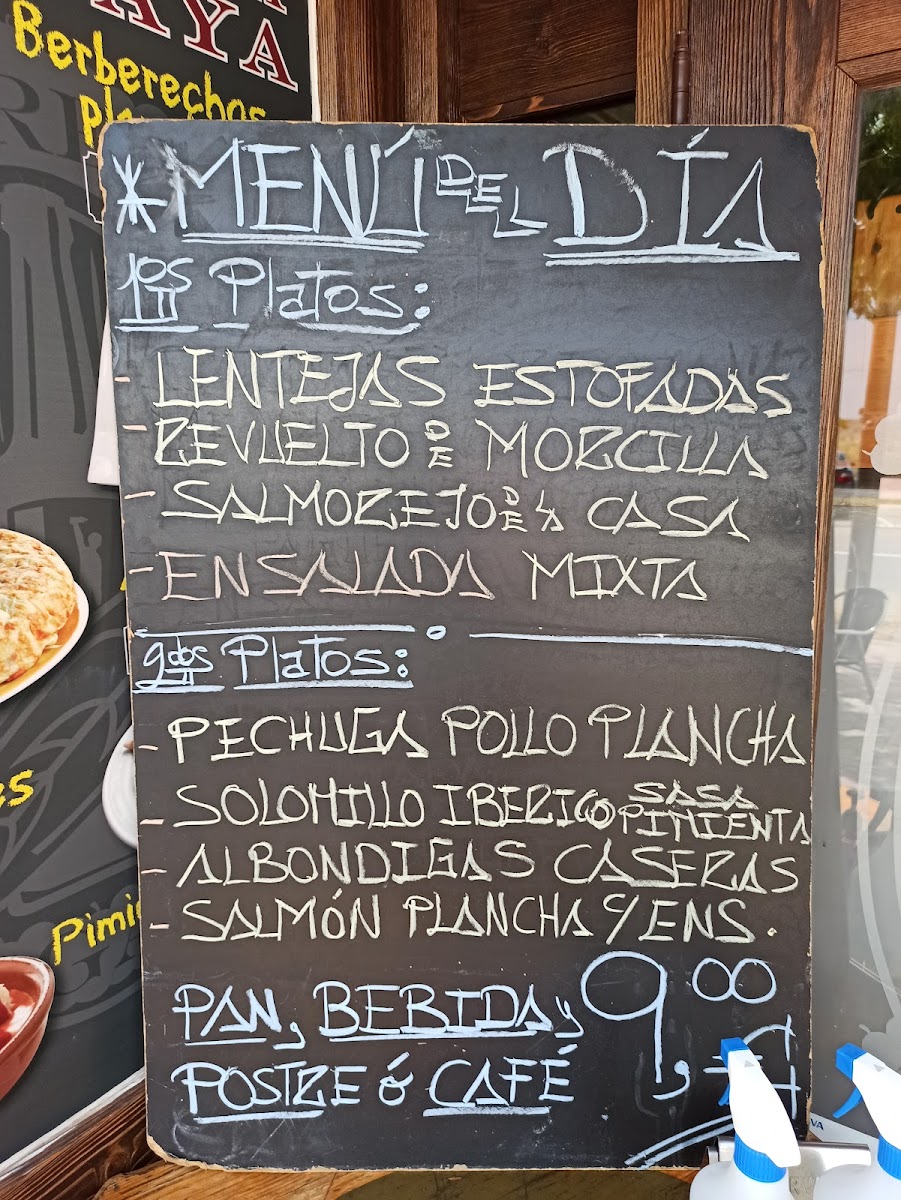 AYA
Berberechos
* MENÚ DEL DÍA
1ros Platos:
- LENTEJAS ESTOFADAS
- REVUELTO DE MORCILLA
- SALMOREJO DE LA CASA
- ENSALADA MIXTA
2dos Platos:
- PECHUGA POLLO PLANCHA
- SOLOMILLO IBERICO SALSA PIMIENTA
- ALBONDIGAS CASERAS
- SALMÓN PLANCHA C/ ENS.
PAN, BEBIDA y
POSTRE ó CAFÉ
9,00
es
Pimie